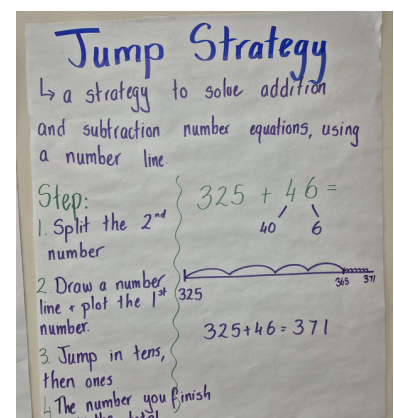 Jump Strategy
↳ a strategy to solve addition
and subtraction number equations, using
a number line.
Step:
1. Split the 2nd
number
2. Draw a number
line + plot the 1st
number.
3. Jump in tens,
then ones
4. The number you finish
325 + 46 =
40 6
325 365 371
325+46=371